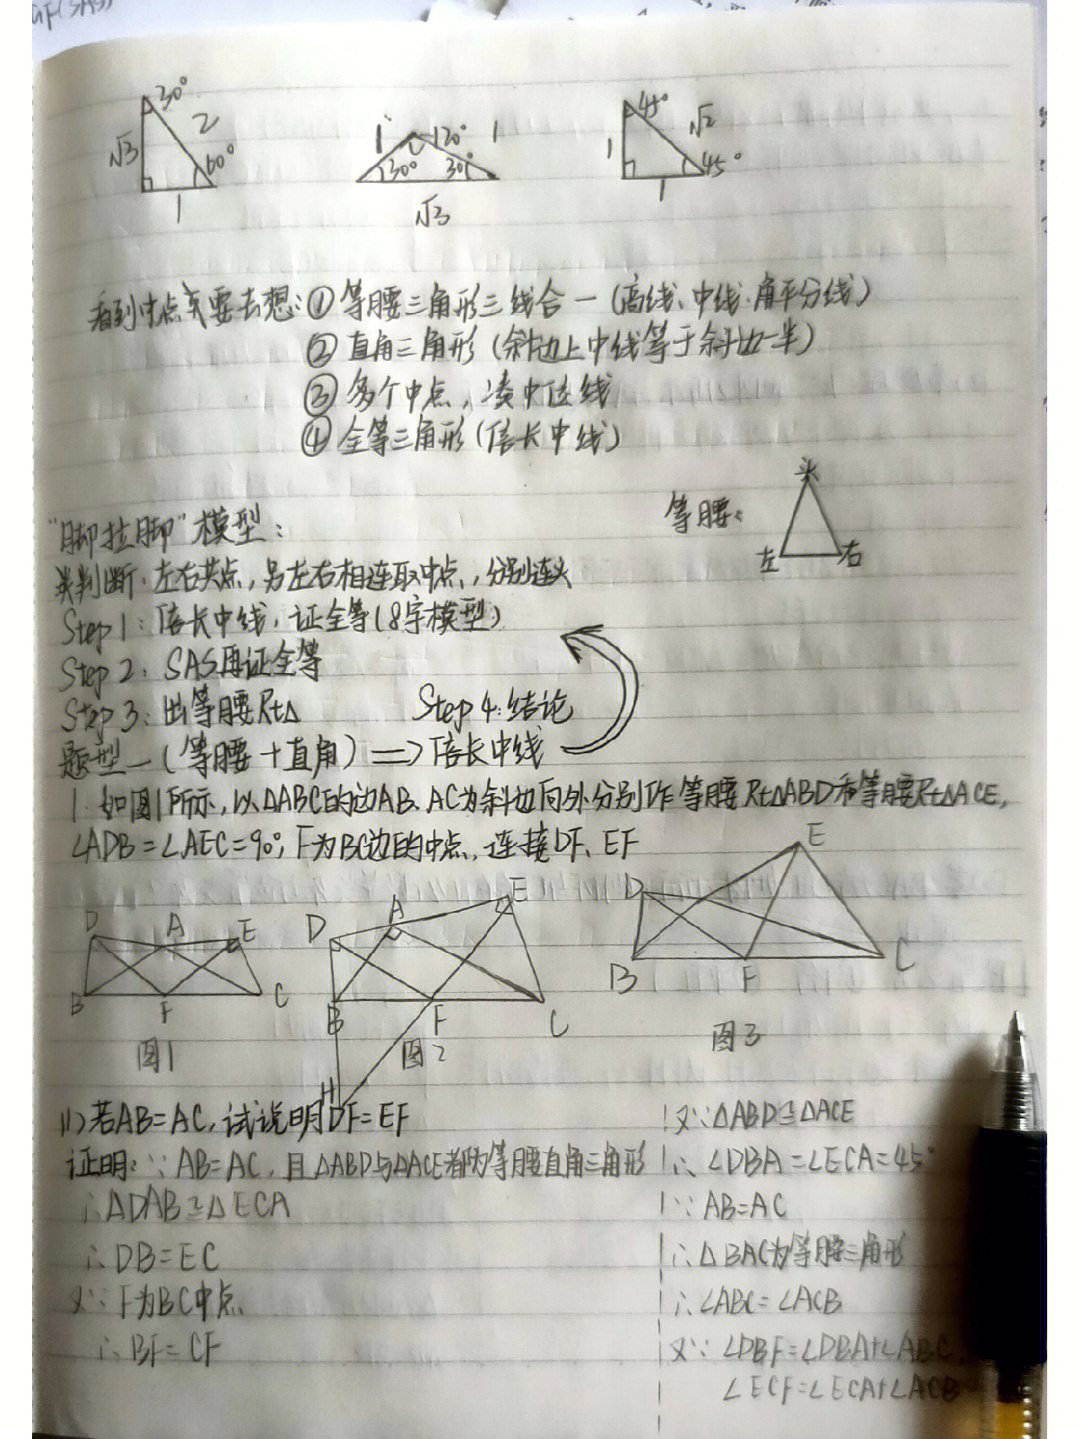 GF(SAS)
30° 2 √3 60° 1
1 120° 1 30° 30° √3
45° √2 1 45° 1
看到中点要去想:① 等腰三角形三线合一(高线、中线、角平分线)
② 直角三角形(斜边上中线等于斜边一半)
③ 多个中点,凑中位线
④ 全等三角形(倍长中线)
等腰: 头 左 右
"脚拉脚"模型:
判断:左右共点,另左右相连取中点,分别连头
Step 1:倍长中线,证全等(8字模型)
Step 2:SAS再证全等
Step 3:出等腰Rt△ Step 4:结论
题型一(等腰+直角)=>倍长中线
1.如图1所示,以△ABC的边AB、AC为斜边向外分别作等腰Rt△ABD和等腰Rt△ACE,
∠ADB=∠AEC=90°,F为BC边的中点,连接DF、EF
D A E B F C
图1
D A E B F C H
图2
D E B F C
图3
(1)若AB=AC,试说明DF=EF
证明:∵AB=AC,且△ABD与△ACE都为等腰直角三角形
∴△DAB≌△ECA
∴DB=EC
又∵F为BC中点
∴BF=CF
又∵△ABD≌△ACE
∴∠DBA=∠ECA=45°
∵AB=AC
∴△BAC为等腰三角形
∴∠ABC=∠ACB
又∵∠DBF=∠DBA+∠ABC,
∠ECF=∠ECA+∠ACB